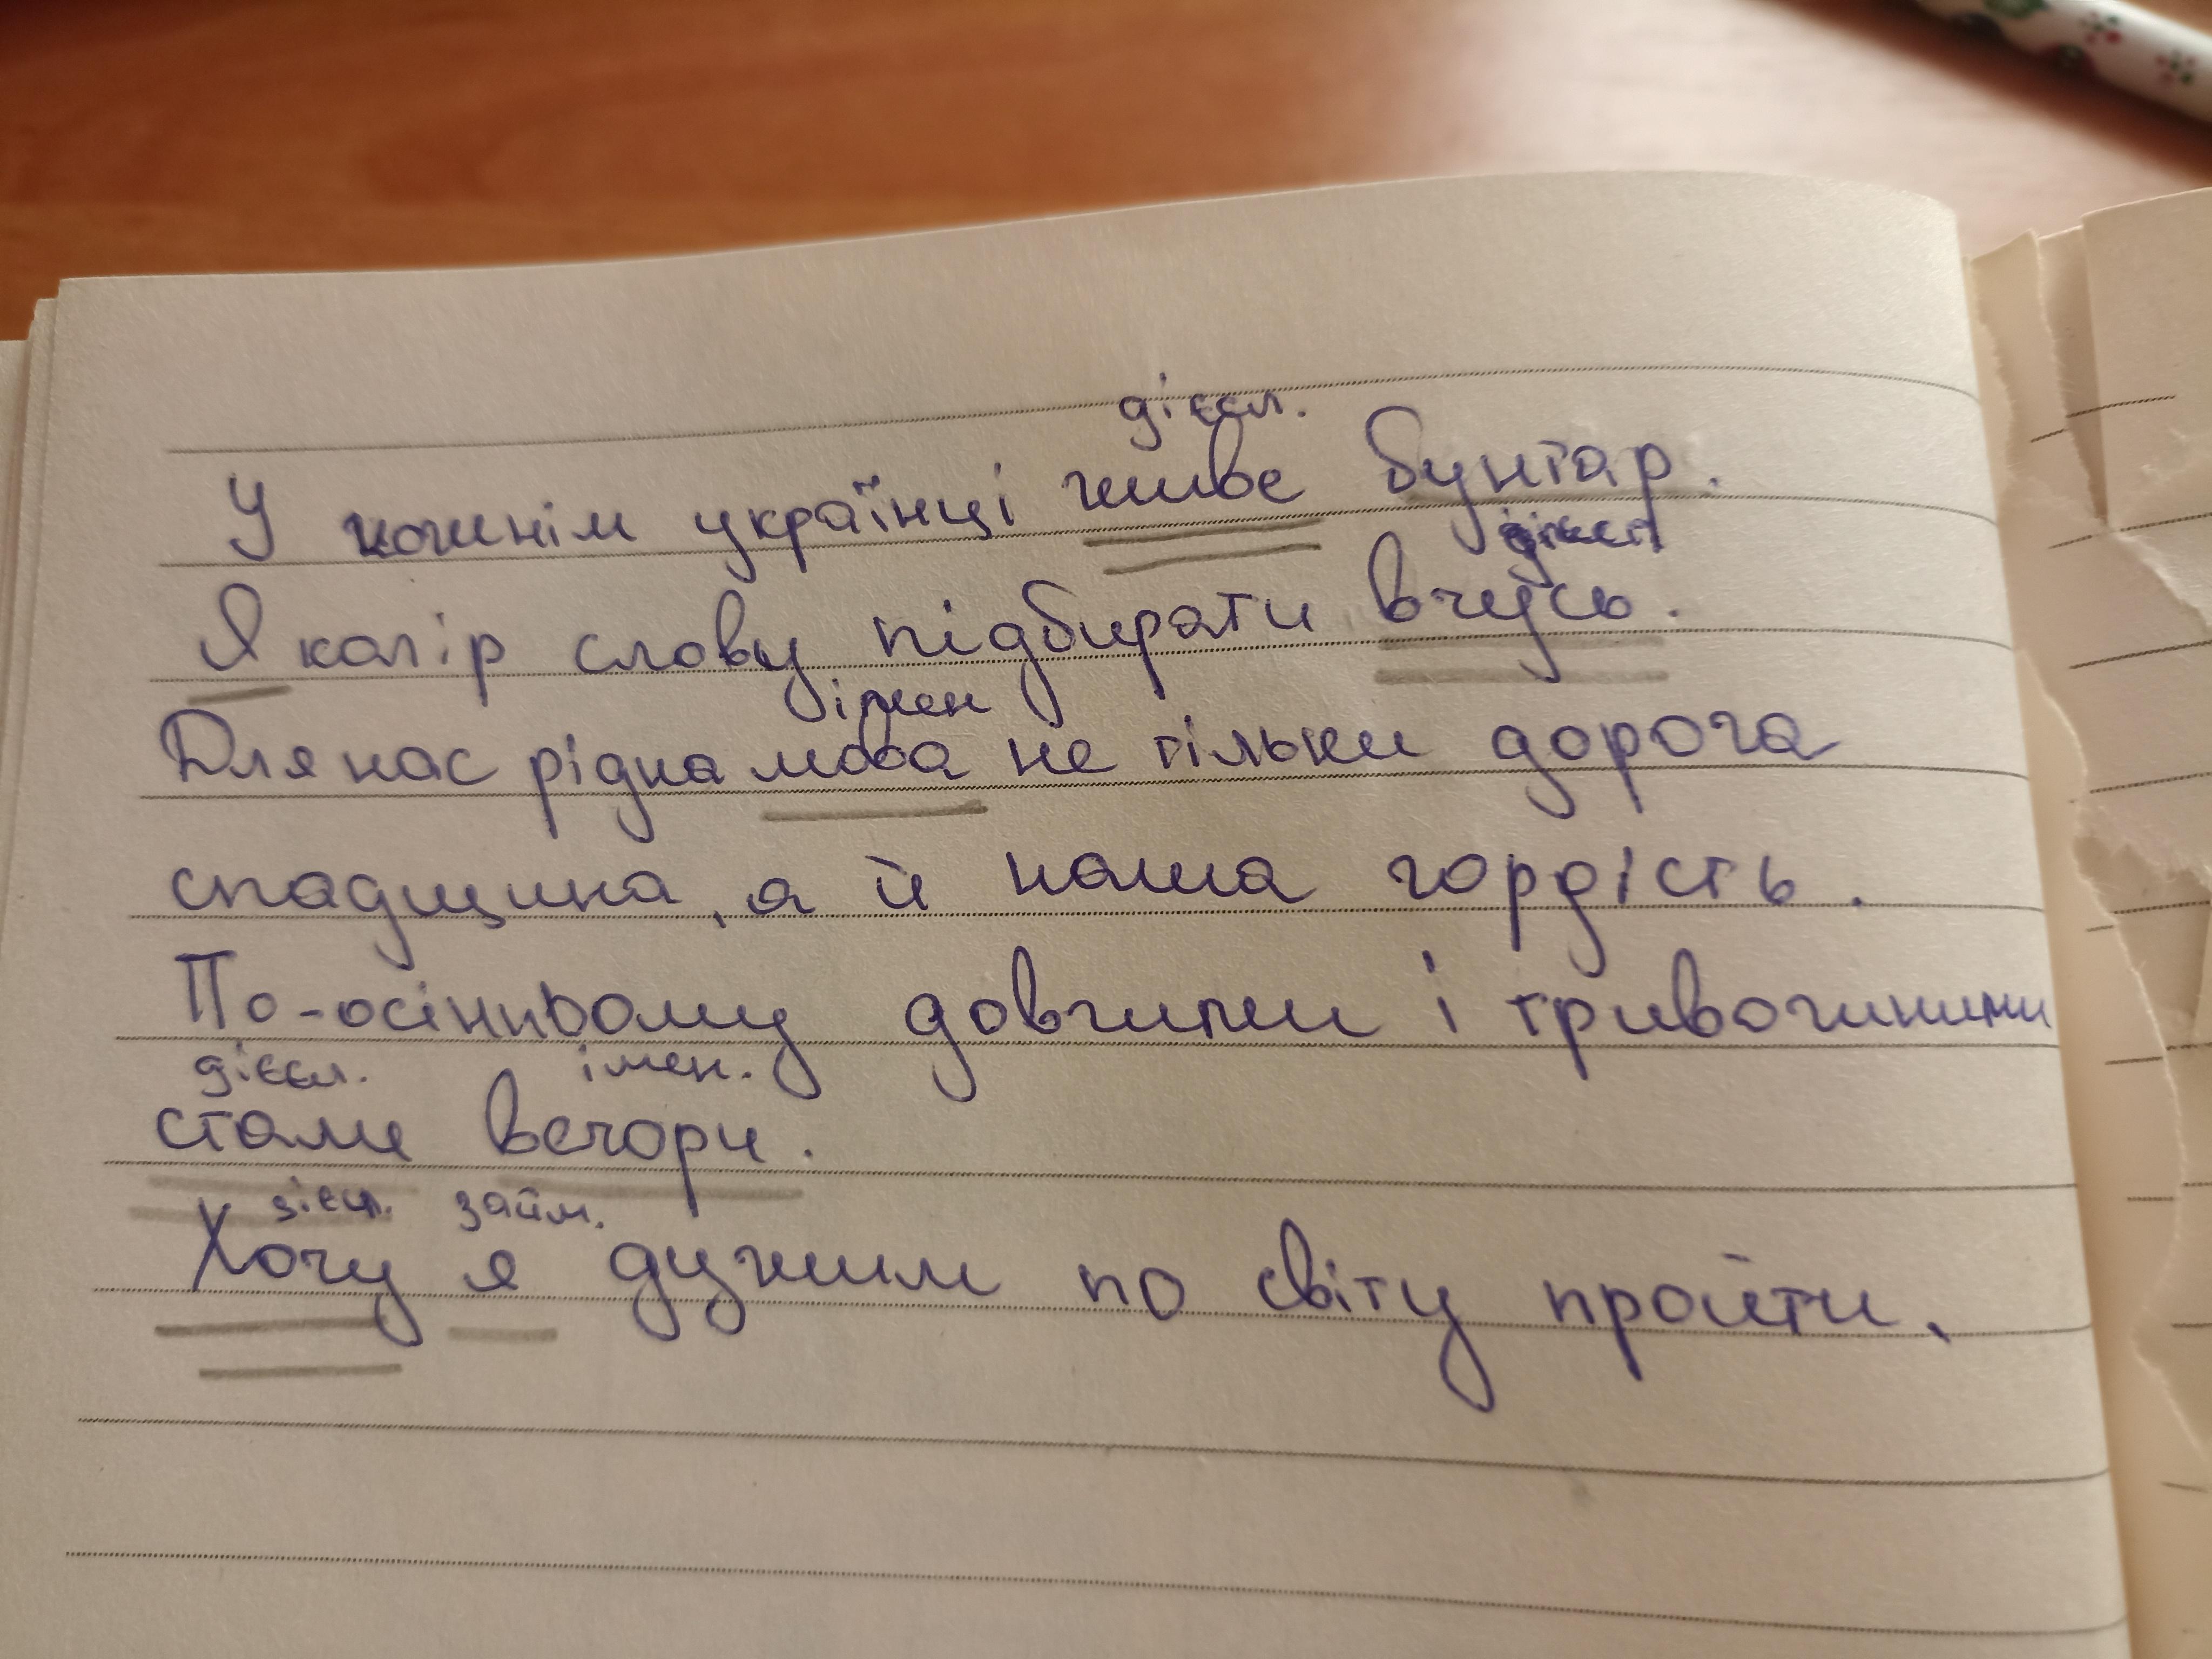 дієсл.
У кожнім українці живе бунтар.
дієсл
Я колір слову підбирати вчусь.
імен
Для нас рідна мова не тільки дорога
спадщина, а й наша гордість.
По-осінньому довгими і тривожними
дієсл. імен.
стали вечори.
дієсл. займ.
Хочу я дужим по світу пройти.